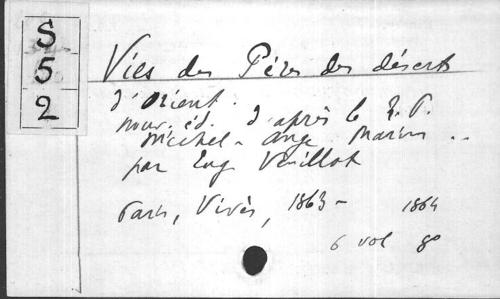 S
5
2
Vies des Pères des déserts
d'Orient.
nouv. éd. d'après le R. P.
Michel-Ange Marin ..
par Eug Veuillot
Paris, Vivès, 1863 - 1864
6 vol 8º